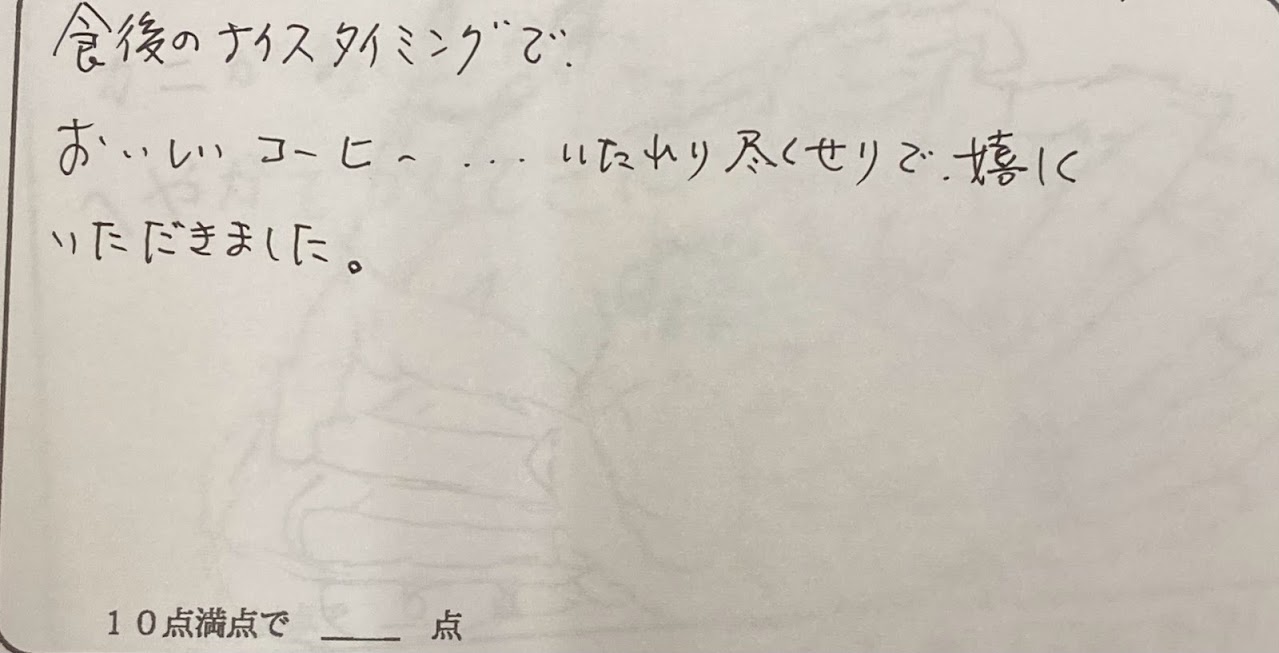 食後のナイスタイミングで、
おいしいコーヒー...いたれり尽くせりで、嬉しく
いただきました。
10点満点で ____ 点